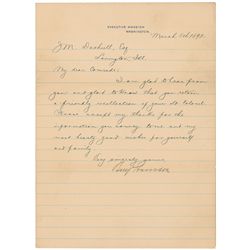 EXECUTIVE MANSION
WASHINGTON.
March
J.M. Esq
Lexington Ill.
My dear Comrade:
I am glad to hear from
you and glad to know that you retain
a friendly recollection of your old Colonel.
Please accept my thanks for the
information you convey to me and my
most hearty good wishes for yourself
and family
Very sincerely yours